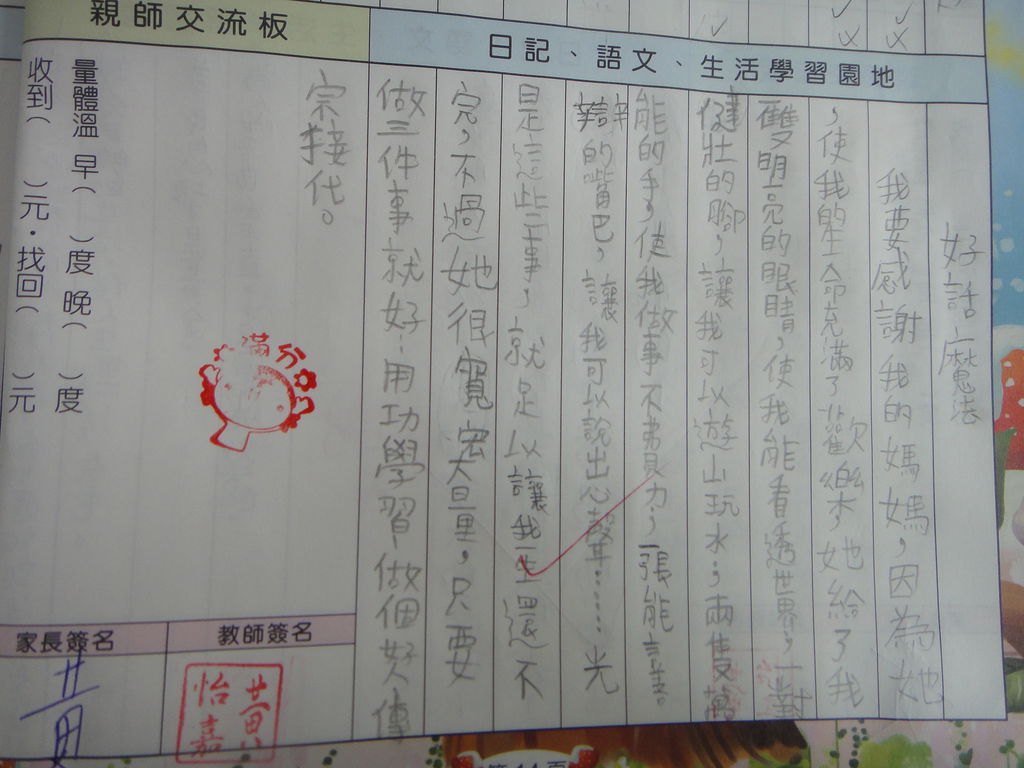 日記、語文、生活學習園地
好話魔法
我要感謝我的媽媽，因為她
，使我的生命充滿了歡樂，她給了我
雙明亮的眼睛，使我能看透世界，一對
健壯的腳，讓我可以遊山玩水；兩隻萬
能的手，使我做事不費力，一張能言善
辯的嘴巴，讓我可以說出心聲……光
是這些事，就足以讓我一生還不
完，不過她很寬宏大量，只要
做三件事就好：用功學習做個好傳
宗接代。
親師交流板
量體溫 早( )度 晚( )度
收到( )元·找回( )元
滿分
教師簽名
黃怡嘉
家長簽名
黃